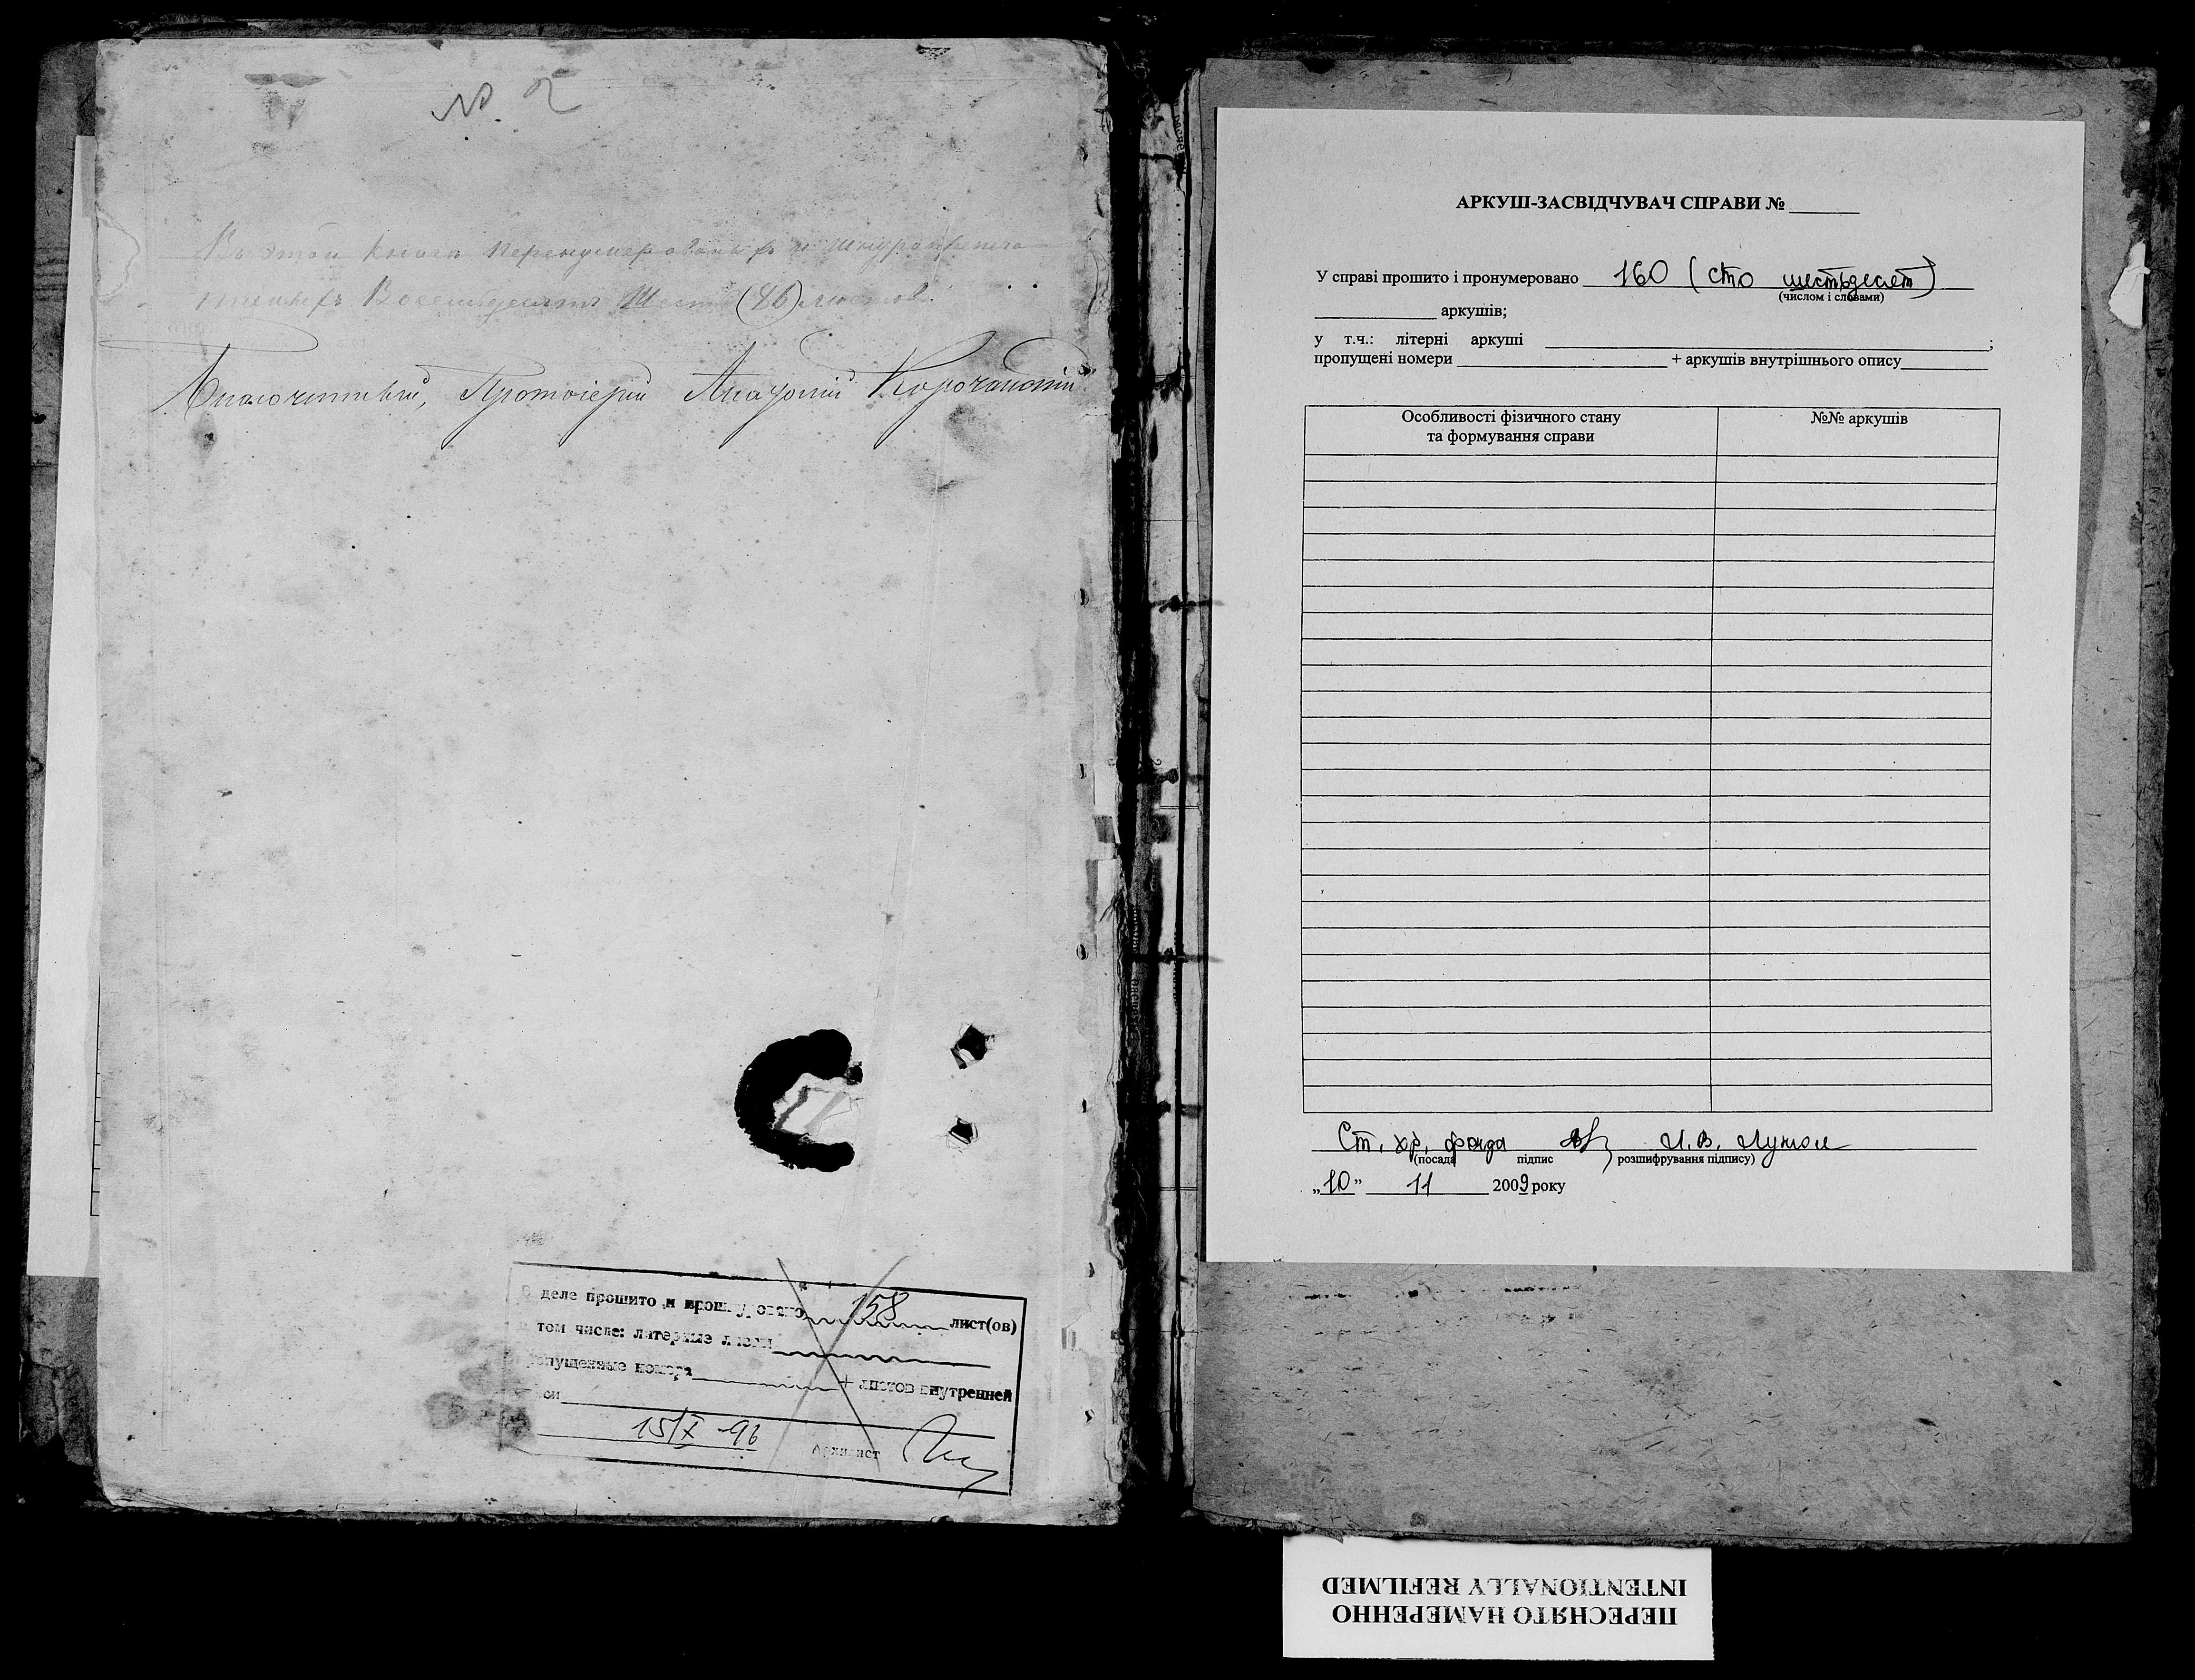 № 2
Въ этой книгѣ перенумерованныхъ и
Восемьдесятъ Шесть (86) листовъ.
Благочинный, Протоіерей Анатолій
В деле прошито и пронумеровано 158 лист(ов)
в том числе: литерные листы
пропущенные номера + листов внутренней
описи
15/X -96 Архивист
АРКУШ-ЗАСВІДЧУВАЧ СПРАВИ №
У справі прошито і пронумеровано 160 (сто шестьдесят)
(числом і словами)
аркушів;
у т.ч.: літерні аркуші ;
пропущені номери + аркушів внутрішнього опису
Особливості фізичного стану №№ аркушів
та формування справи
Ст. хр. фонда И.В.
(посада підпис розшифрування підпису)
„10” 11 2009 року
ПЕРЕСНЯТО НАМЕРЕННО
INTENTIONALLY REFILMED